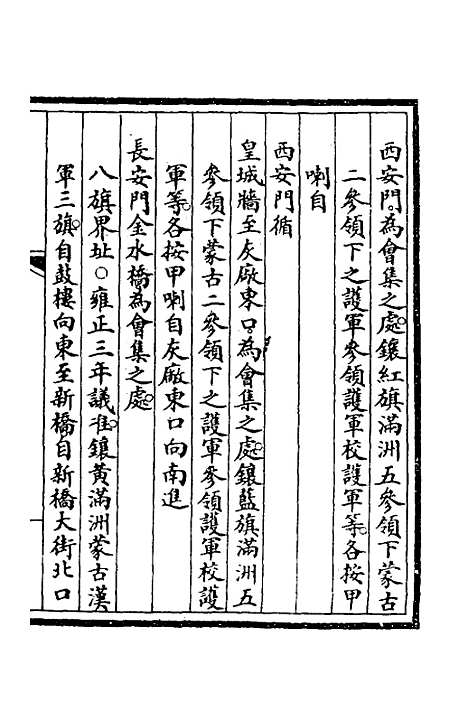 西安門。為會集之處。鑲紅旗滿洲五參領下蒙古
二參領下之護軍參領護軍校護軍等。各按甲
喇自
西安門循
皇城牆至灰廠東口。為會集之處。鑲藍旗滿洲五
參領下蒙古二參領下之護軍參領護軍校護
軍等。各按甲喇自灰廠東口向南進
長安門金水橋為會集之處。
八旗界址〇雍正三年議准。鑲黃滿洲蒙古漢
軍三旗。自鼓樓向東至新橋。自新橋大街北口